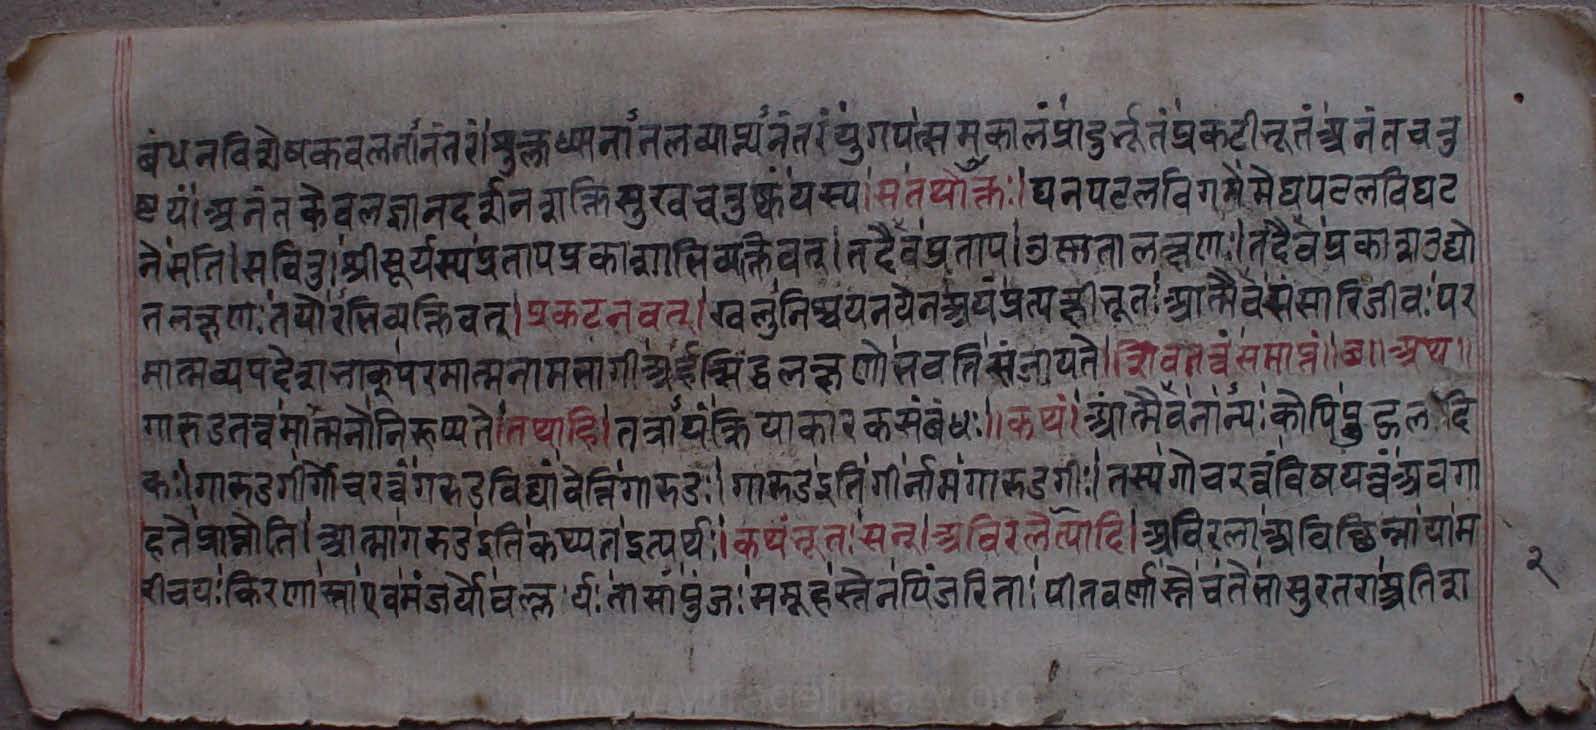 बंधनविशेषकवलनानंतरं।शुक्लध्यानानलव्याप्त्यनंतरं युगपत्समकालं प्रादुर्भूतं प्रकटीभूतं अनंतचतु
ष्टयं।अनंतकेवलज्ञानदर्शनशक्तिसुखचतुष्कं यस्य।स तथोक्तः।घनपटलविगमे मेघपटलविघट
ने सति।सवितुः।श्रीसूर्यस्य प्रतापप्रकाशाभिव्यक्तिवत्।तदैव प्रताप।उष्णतालक्षणः।तदैव प्रकाशउद्यो
तलक्षणः तयोरभिव्यक्तिवत्।प्रकटनवत्।खलु निश्चयनयेन अयं प्रत्यक्षीभूतः आत्मैव संसारिजीवः पर
मात्मव्यपदेशभाक् परमात्मनामभागी अर्हत्सिद्धलक्षणो भवति संजायते।शिवतत्वं समाप्तं॥छ॥अथ॥
गारुडतत्वमात्मनो निरूप्यते।तथाहि।तत्रायं क्रियाकारकसंबंधः॥कथं।आत्मैव नान्यः कोपि पुद्गलादि
कः।गारुडगीर्गोचरत्वं गरुडविद्यां वेत्ति गारुडः।गारुड इति गीर्नाम गारुडगीः।तस्य गोचरत्वं विषयत्वं अवगा
हते प्राप्नोति।आत्मा गरुड इति कथ्यत इत्यर्थः।कथंभूतः सन्।अविरलेत्यादि।अविरला अविच्छिन्ना या म
रीचयः किरणास्ता एव मंजर्यो वल्लर्यः तासां पुंजः समूहस्तेन पिंजरिताः पीतवर्णास्ते च ते भासुरतरा अतिश
२
www.vitragelibrary.org